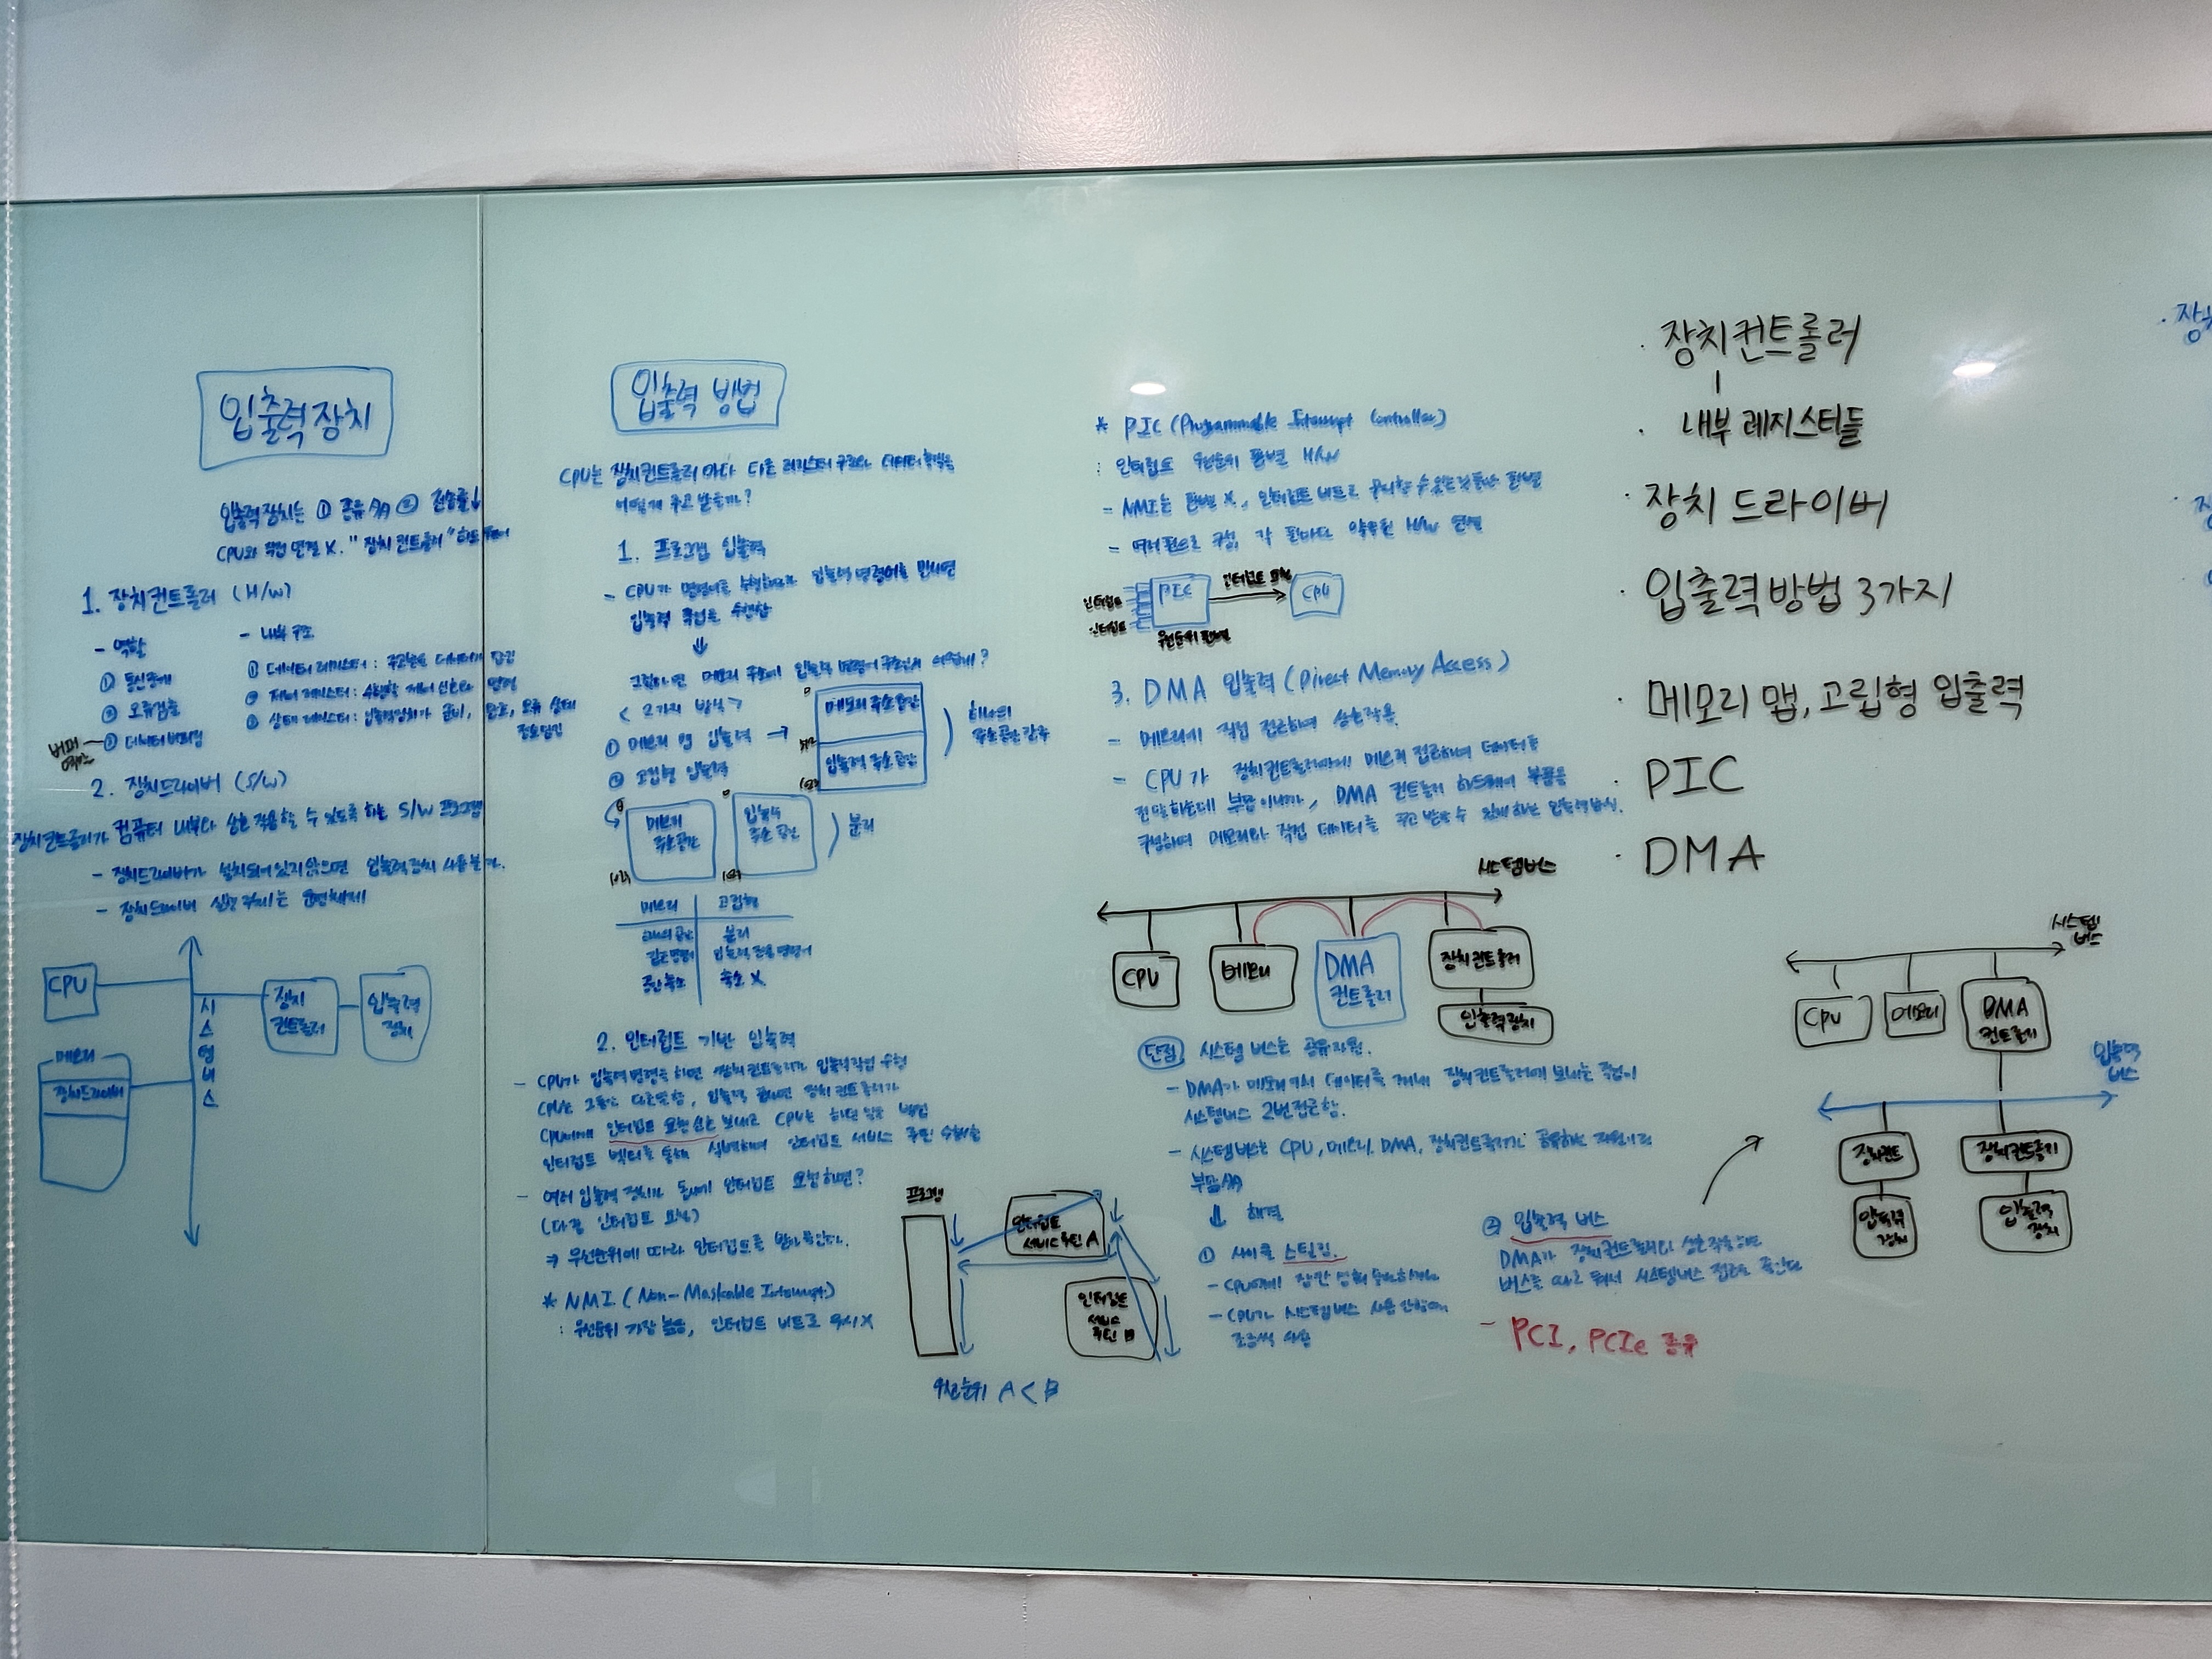 입출력장치
입출력장치는 ① 종류 많음 ② 전송률↓
CPU와 직접 연결 X. "장치 컨트롤러"
1. 장치컨트롤러 (H/W)
- 역할
① 통신중개
② 오류검출
③ 데이터 버퍼링
버퍼
- 내부 구조
① 데이터 레지스터 : 주고받을 데이터가 담김
② 제어 레지스터 : 수행할 제어 신호와 명령
③ 상태 레지스터 : 입출력장치가 준비, 완료, 오류 상태
2. 장치드라이버 (S/W)
장치컨트롤러가 컴퓨터 내부와 상호 작용할 수 있도록 하는 S/W 프로그램
- 장치드라이버가 설치되어 있지 않으면 입출력장치 사용 불가.
- 장치드라이버 실행 주체는 운영체제
CPU
메모리
장치드라이버
시스템버스
장치
컨트롤러
입출력
장치
입출력 방법
CPU는 장치컨트롤러 마다 다른 레지스터 구조와 데이터
어떻게 주고 받을까?
1. 프로그램 입출력
- CPU가 명령어를 수행하다가 입출력 명령어를 만나면
입출력 작업을 수행함
⇓
그렇다면 메모리 주소와 입출력 명령어 주소는 어떻게?
< 2가지 방식 >
① 메모리 맵 입출력 →
② 고립형 입출력
메모리 주소공간
입출력 주소공간
하나의
주소공간 간주
메모리
주소공간
입출력
주소 공간
분리
메모리
고립형
하나의 공간
분리
같은 명령어
입출력 전용 명령어
공간 축소
축소 X
2. 인터럽트 기반 입출력
- CPU가 입출력 명령을 하면 장치컨트롤러가 입출력작업 수행
CPU는 그동안 다른일함, 입출력 끝나면 장치 컨트롤러가
CPU에게 인터럽트 요청 신호 보내고 CPU는 하던 일을 백업
인터럽트 벡터를 통해 식별하여 인터럽트 서비스 루틴 수행
- 여러 입출력 장치가 동시에 인터럽트 요청하면?
(다중 인터럽트 요청)
⇒ 우선순위에 따라 인터럽트를 받아들인다.
* NMI (Non-Maskable Interrupt)
: 우선순위 가장 높음, 인터럽트 비트로 무시 X
프로그램
인터럽트
서비스루틴 A
인터럽트
서비스
루틴 B
우선순위 A < B
* PIC (Programmable Interrupt Controller)
: 인터럽트 우선순위 판별 H/W
- NMI는 판별 X, 인터럽트 비트로 무시할 수 있는것들만 판별
- 여러 핀으로 구성, 각 핀마다 약속된 H/W 연결
인터럽트
인터럽트
PIC
우선순위 판별
인터럽트 요청
CPU
3. DMA 입출력 (Direct Memory Access)
- 메모리에 직접 접근하여 상호작용.
- CPU가 장치컨트롤러마다 메모리 접근하여 데이터를
전달하는데 부담이니까, DMA 컨트롤러 하드웨어 부품을
구성하여 메모리와 직접 데이터를 주고 받을 수 있게 하는 입출력방식.
시스템버스
CPU
메모리
DMA
컨트롤러
장치컨트롤러
입출력장치
단점 시스템 버스는 공유자원.
- DMA가 메모리에서 데이터를 꺼내 장치컨트롤러에 보내는 작업이
시스템버스 2번 접근함.
- 시스템버스는 CPU, 메모리, DMA, 장치컨트롤러가 공유하는 자원이라
부담
⇓ 해결
① 사이클 스틸링.
- CPU가 시스템버스 사용 안할때
조금씩 사용
② 입출력 버스
DMA가 장치컨트롤러와 상호작용하는
버스를 따로 둬서 시스템버스 접근을 줄인다
- PCI, PCIe 종류
· 장치컨트롤러
· 내부 레지스터들
· 장치 드라이버
· 입출력방법 3가지
· 메모리 맵, 고립형 입출력
· PIC
· DMA
시스템
버스
CPU
메모리
DMA
컨트롤러
입출력
버스
장치컨트
장치컨트롤러
입출력
장치
입출력
장치